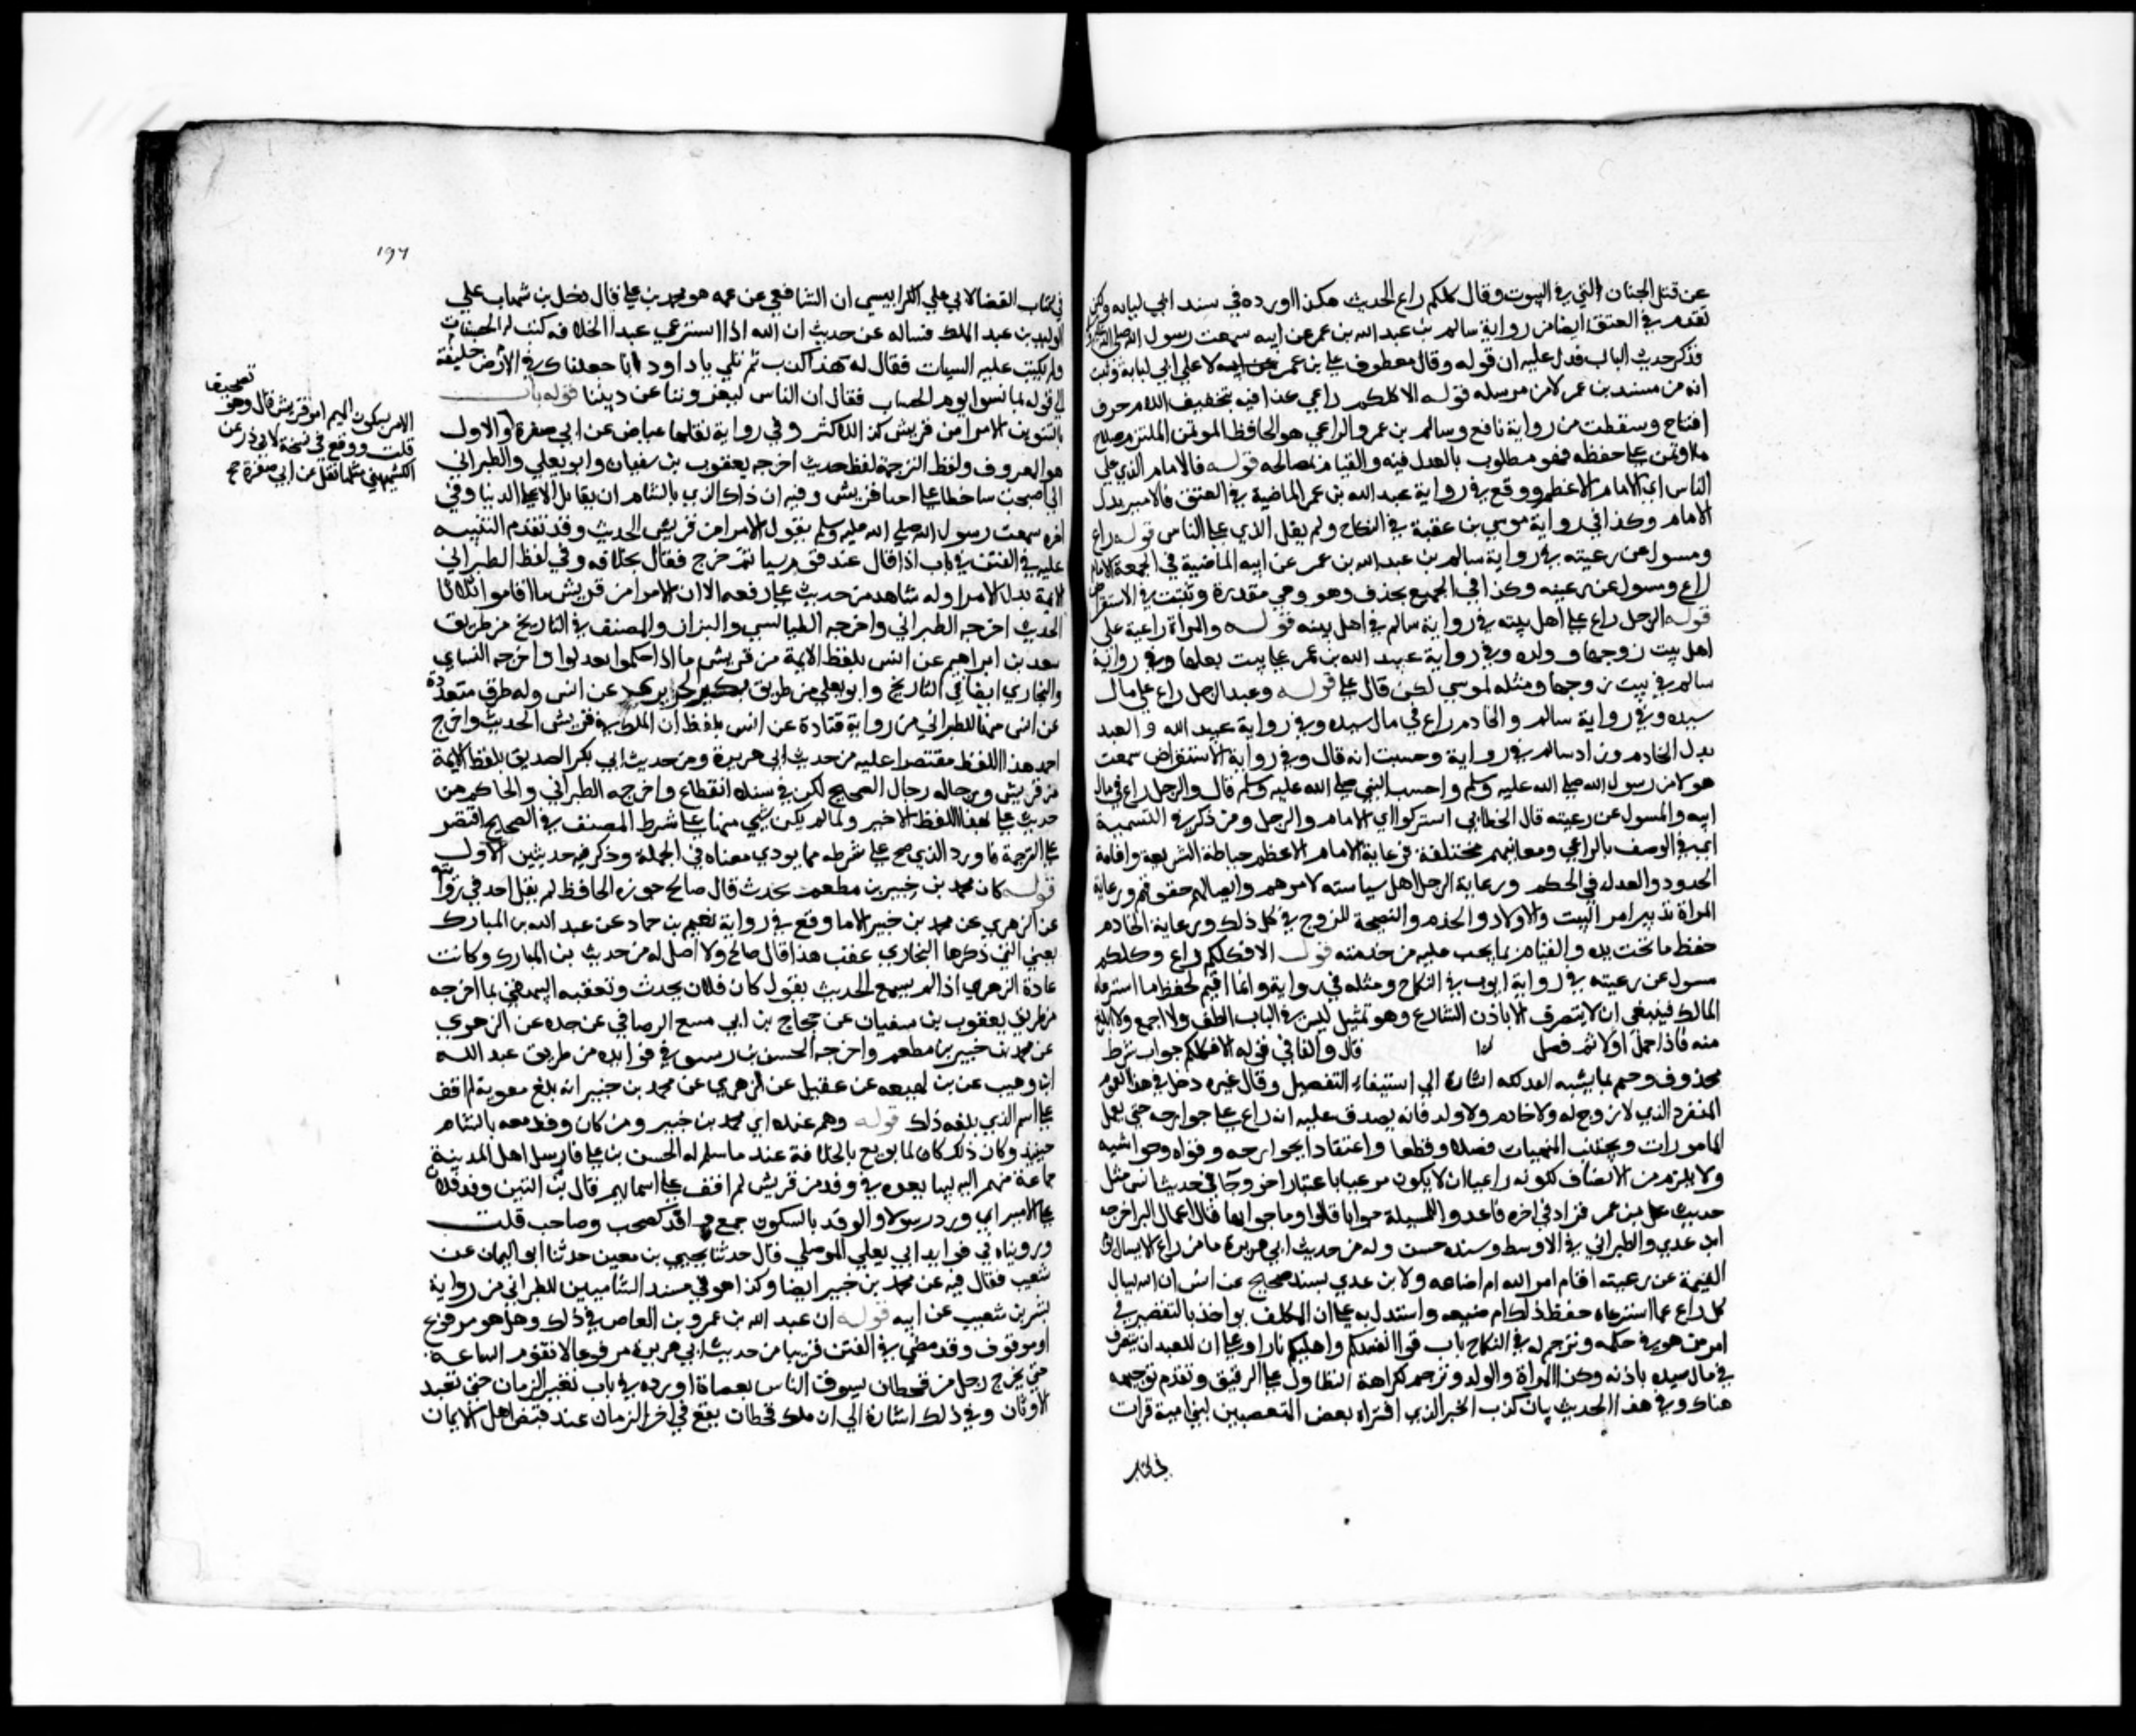 عن قتل الجنان التي في البيوت وقال كلكم راع الحديث هكذا اورده في سند ابي لبابه ولكن
تقدم في العتق ايضا من رواية سالم بن عبد الله بن عمر عن ابيه سمعت رسول الله صلى الله
فذكر حديث الباب فدل عليه ان قوله وقال معطوف على بن عمر لا على ابي لبابة وثبت
انه من مسند بن عمر لا من مرسله قوله الا كلكم راعي كذا فيه بتخفيف اللام حرف
افتتاح وسقطت من رواية نافع وسالم بن عمر والراعي هو الحافظ الموتمن الملتزم صلاح
ما اوتمن على حفظه فهو مطلوب بالعدل فيه والقيام بمصالحه قوله فالامام الذي على
الناس اي الامام الاعظم ووقع في رواية عبد الله بن عمر الماضية في العتق فالامير بدل
الامام وكذا في رواية موسي بن عقبة في النكاح ولم يقل الذي على الناس قوله راع
ومسول عن رعيته في رواية سالم بن عبد الله بن عمر عن ابيه الماضية في الجمعة الامام
راع ومسول عن رعيته وكذا في الجميع بحذف وهو وهي مقدرة وثبتت في الاستقراض
قوله الرجل راع على اهل بيته في رواية سالم في اهل بيته قوله والمراة راعية على
اهل بيت زوجها وولده وفي رواية عبيد الله بن عمر على بيت بعلها وفي رواية
سالم في بيت زوجها ومثله لموسي لكن قال على قوله وعبد الرجل راع على مال
سيده وفي رواية سالم والخادم راع في مال سيده وفي رواية عبيد الله والعبد
بدل الخادم وزاد سالم في رواية وحسبت انه قال وفي رواية الاستقراض سمعت
هولا من رسول الله صلى الله عليه وسلم واحسب النبي صلى الله عليه وسلم قال والرجل راع في مال
ابيه والمسول عن رعيته قال الخطابي اشتركوا اي الامام والرجل ومن ذكر في التسمية
اي في الوصف بالراعي ومعانيهم مختلفة فرعاية الامام الاعظم حياطة الشريعة واقامة
الحدود والعدل في الحكم ورعاية الرجل اهل سياسته لامرهم وايصالهم حقوقهم ورعاية
المراة تدبير امر البيت والاولاد والخدم والنصيحة للزوج في كل ذلك ورعاية الخادم
حفظ ما تحت يده والقيام بما يجب عليه من خدمته قوله الا فكلكم راع وكلكم
مسول عن رعيته في رواية ايوب في النكاح ومثله في رواية وانما اقيم لحفظ ما استرعاه
المالك فينبغي ان لا يتصرف الا باذن الشارع وهو تمثيل ليس في الباب الطف ولا اجمع ولا ابلغ
منه فاذا اجمل اولا ثم فصل قال والفا في قوله الا فكلكم جواب شرط
محذوف وختم بما يشبه الفدلكه اشارة الي استيفاء التفصيل وقال غيره دخل في هذا العموم
المنفرد الذي لا زوج له ولا خادم ولا ولد فانه يصدق عليه انه راع على جوارحه حتى يعمل
المامورات ويجتنب المنهيات فعلا ونطقا واعتقادا فجوارحه وقواه وحواسه
ولا يلزم من الاتصاف بكونه راعيا ان لا يكون مرعيا باعتبار اخر وجا في حديث انس مثل
حديث بن عمر فزاد في اخره فاعدوا للمسيلة جوابا قالوا وما جوابها قال اعمال البر اخرجه
ابن عدي والطبراني في الاوسط وسنده حسن وله من حديث ابي هريرة ما من راع الا يسال يوم
القيمة عن رعيته اقام امر الله ام اضاعه ولا بن عدي بسند صحيح عن انس ان الله يسال
كل راع عما استرعاه حفظ ذلك ام ضيعه واستدل به على ان المكلف يواخذ بالتقصير في
امر من هو في حكمه وترجم له في النكاح باب قوا انفسكم واهليكم نارا وعلى ان للعبد ان يتصرف
في مال سيده باذنه وكذا المراة والولد وترجم لكراهة التطاول على الرقيق وتقدم توجيهه
هناك وفي هذا الحديث بيان كذب الخبر الذي افتراه بعض المتعصبين لبني امية قرات
في كتاب
١٩٦
في كتاب القضا لابي علي الكرابيسي ان الشافعي عن عمه هو محمد بن علي قال دخل بن شهاب علي
الوليد بن عبد الملك فساله عن حديث ان الله اذا استرعي عبدا الخلافه كتب له الحسنات
ولم يكتب عليه السيات فقال له هذا كذب ثم تلي يا داود انا جعلناك في الارض خليفة
الي قوله بما نسوا يوم الحساب فقال ان الناس ليغروننا عن ديننا قوله باب
بالتنوين الامرا من قريش كذا للاكثر وفي رواية نقلها عياض عن ابي صفرة والاول
هو المعروف ولفظ الترجمة لفظ حديث اخرجه يعقوب بن سفيان وابو يعلي والطبراني
اني اصبحت ساخطا على احيا قريش وفيه ان ذاك الذي بالشام ان يقاتل الا على الدنيا وفي
اخره سمعت رسول الله صلى الله عليه وسلم يقول الامرا من قريش الحديث وقد تقدم التنبيه
عليه في الفتن في باب اذا قال عند قوم شيا ثم خرج فقال بخلافه وفي لفظ الطبراني
الايمة بدل الامرا وله شاهد من حديث علي رفعه الا ان الامرا من قريش ما اقاموا ثلاثا
الحديث اخرجه الطبراني واخرجه الطيالسي والبزار والمصنف في التاريخ من طريق
سعد بن ابراهيم عن انس بلفظ الايمة من قريش ما اذا حكموا فعدلوا واخرجه النساي
والبخاري ايضا في التاريخ وابو يعلي من طريق بكير الجزيري عن انس وله طرق متعددة
عن انس منها للطبراني من رواية قتادة عن انس بلفظ ان الملك في قريش الحديث واخرج
احمد هذا اللفظ مقتصرا عليه من حديث ابي هريرة ومن حديث ابي بكر الصديق بلفظ الايمة
من قريش ورجاله رجال الصحيح لكن في سنده انقطاع واخرجه الطبراني والحاكم من
حديث علي بهذا اللفظ الاخير ولما لم يكن شي منها على شرط المصنف في الصحيح اقتصر
على الترجمة وأورد الذي صح على شرطه مما يودي معناه في الجملة وذكر فيه حديثين الاول
قوله كان محمد بن جبير بن مطعم يحدث قال صالح جزره الحافظ لم يقل احد في روايته
عن الزهري عن محمد بن جبير الا ما وقع في رواية نعيم بن حماد عن عبد الله بن المبارك
يعني التي ذكرها البخاري عقب هذا قال صالح ولا اصل له من حديث بن المبارك وكانت
عادة الزهري اذا لم يسمع الحديث يقول كان فلان يحدث وتعقبه البيهقي بما اخرجه
من طريق يعقوب بن سفيان عن حجاج بن ابي منيع الرصافي عن جده عن الزهري
عن محمد بن جبير بن مطعم واخرجه الحسن بن رشيق في فوايده من طريق عبد الله
ابن وهيب عن بن لهيعه عن عقيل عن الزهري عن محمد بن جبير انه بلغ معوية لم اقف
على اسم الذي بلغه ذلك قوله وهم عنده اي محمد بن جبير ومن كان وفد معه بالشام
حينيذ وكان ذلك كان لما بويع بالخلافة عند ما سلم له الحسن بن علي فارسل اهل المدينة
جماعة منهم اليه ليبايعوه في وفد من قريش لم اقف على اسمايهم قال بن التين وفد فلان
على الامير اي ورد رسولا والوفد بالسكون جمع وافد كصحب وصاحب قلت
ورويناه في فوايد ابي يعلي الموصلي قال حدثنا يحيي بن معين حدثنا ابو اليمان عن
شعيب فقال فيه عن محمد بن جبير ايضا وكذا هو في مسند الشاميين للطبراني من رواية
بشر بن شعيب عن ابيه قوله ان عبد الله بن عمرو بن العاص في ذلك وهل هو مرفوع
او موقوف وقد مضي في الفتن قريبا من حديث ابي هريرة مرفوعا لا تقوم الساعة
حتى يخرج رجل من قحطان يسوق الناس بعصاه اورده في باب تغير الزمان حتى تعبد
الاوثان وفي ذلك اشارة الي ان ملك قحطان يقع في اخر الزمان عند قبض اهل الايمان
تصحيف
الامر بسكون الميم امر قريش قال وهو
قلت ووقع في نسخة لابي ذر عن
الكشميهني مثل ما نقل عن ابي صفرة صح